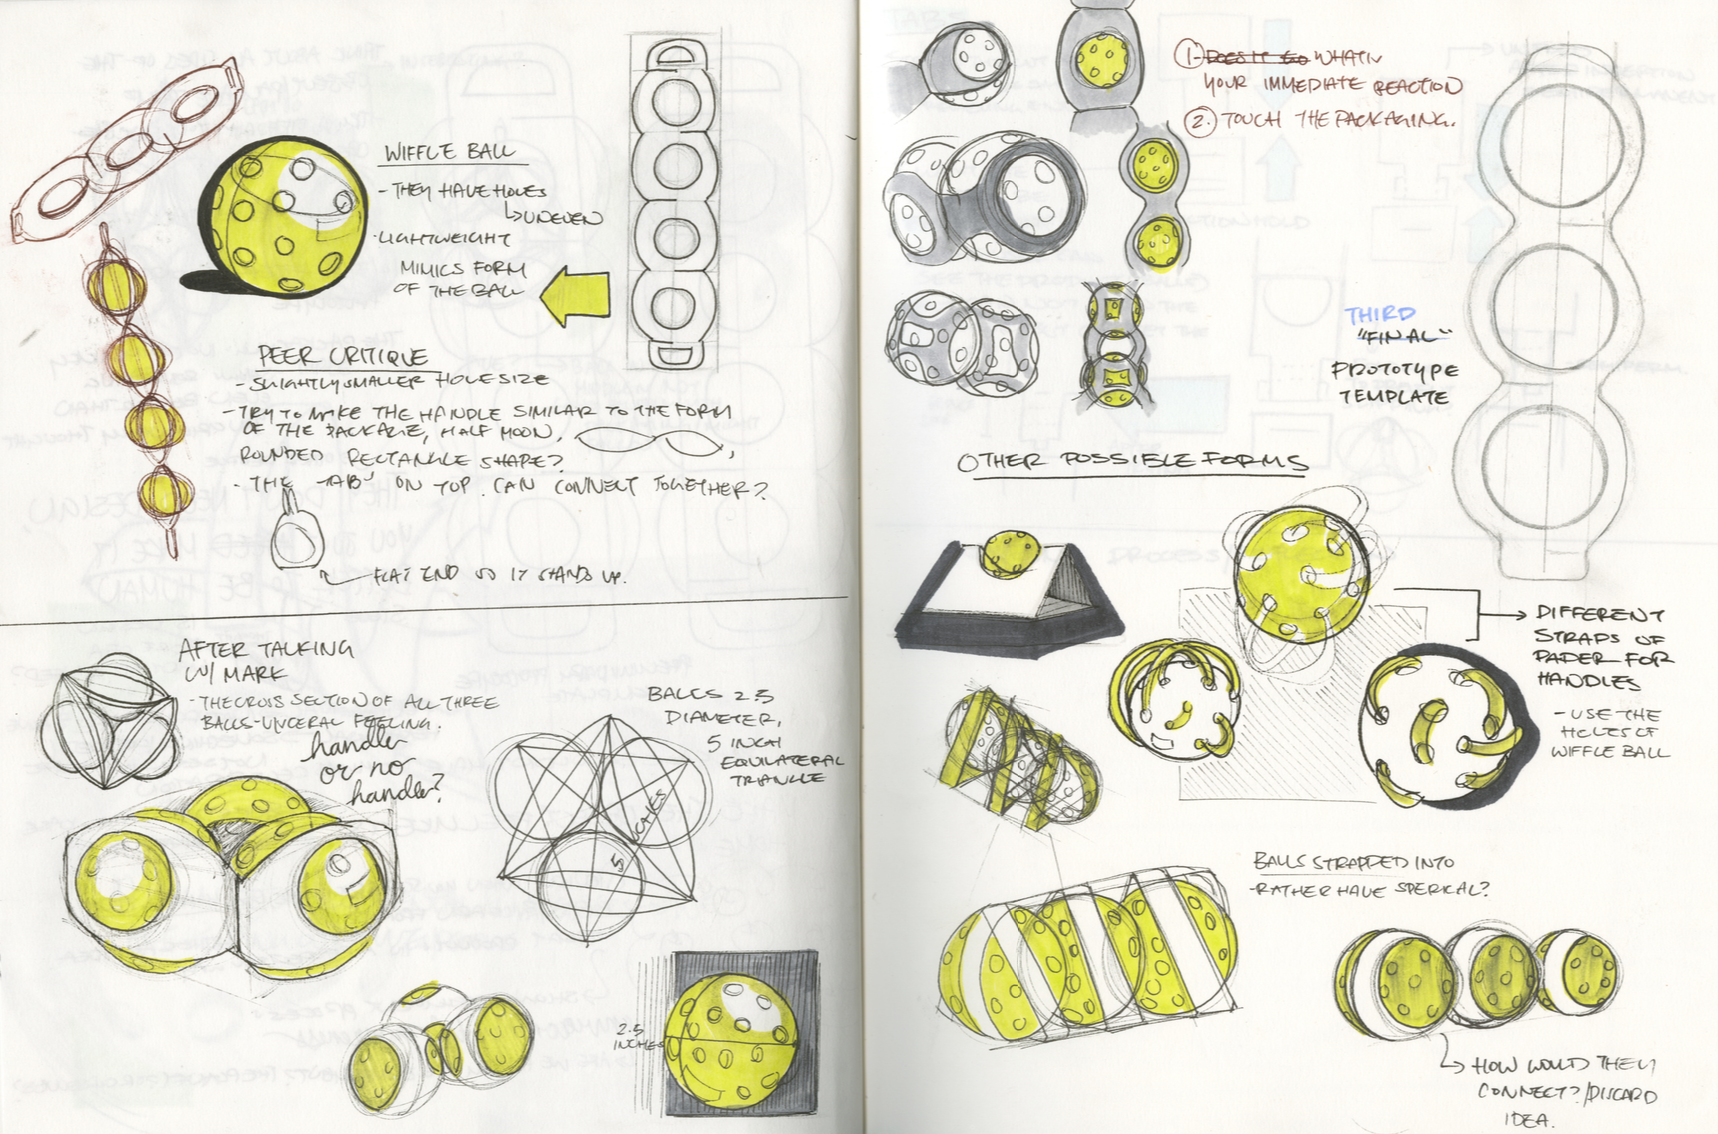 WIFFLE BALL
- THEY HAVE HOLES
UNEVEN
- LIGHTWEIGHT
MIMICS FORM
OF THE BALL
PEER CRITIQUE
- SLIGHTLY SMALLER HOLE SIZE
- TRY TO MAKE THE HANDLE SIMILAR TO THE FORM
OF THE PACKAGE, HALF MOON, ,
ROUNDED RECTANGLE SHAPE?
- THE "TAB" ON TOP. CAN CONNECT TOGETHER?
FLAT END SO IT STANDS UP.
AFTER TALKING
W/ MARK
- THE CROSS SECTION OF ALL THREE
BALLS - UNCERAL FEELING.
handler
or no
handler?
BALLS 2.5
DIAMETER,
5 INCH
EQUILATERAL
TRIANGLE
5 INCHES
2.5
INCHES
1. DOES IT GO WHAT'N
YOUR IMMEDIATE REACTION
2. TOUCH THE PACKAGING.
THIRD
"FINAL"
PROTOTYPE
TEMPLATE
OTHER POSSIBLE FORMS
DIFFERENT
STRAPS OF
PAPER FOR
HANDLES
- USE THE
HOLES OF
WIFFLE BALL
BALLS STRAPPED INTO
- RATHER HAVE SPERICAL?
HOW WOULD THEY
CONNECT?/DISCARD
IDEA.